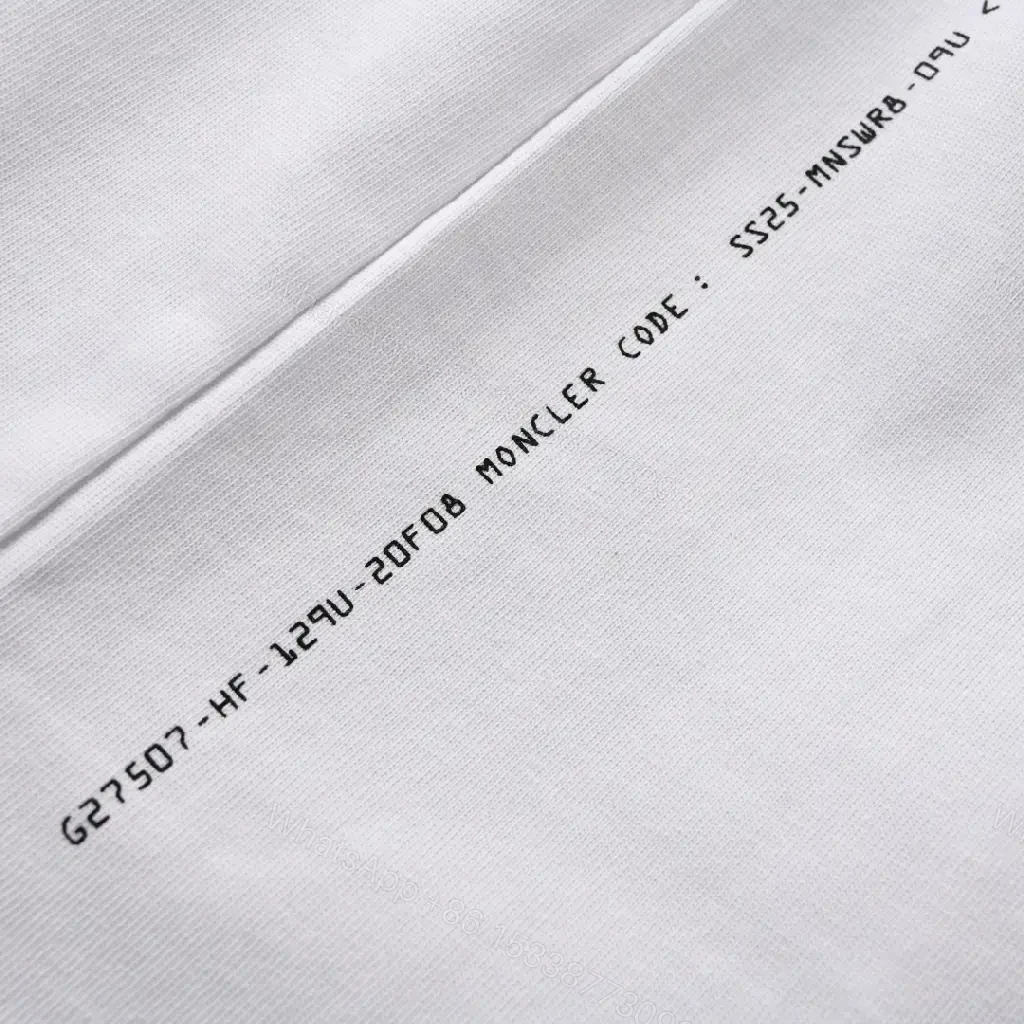 G27507-HF-129U-20F08 MONCLER CODE : SS25-MNSWR8-09U <
WhatsApp +86 153387730